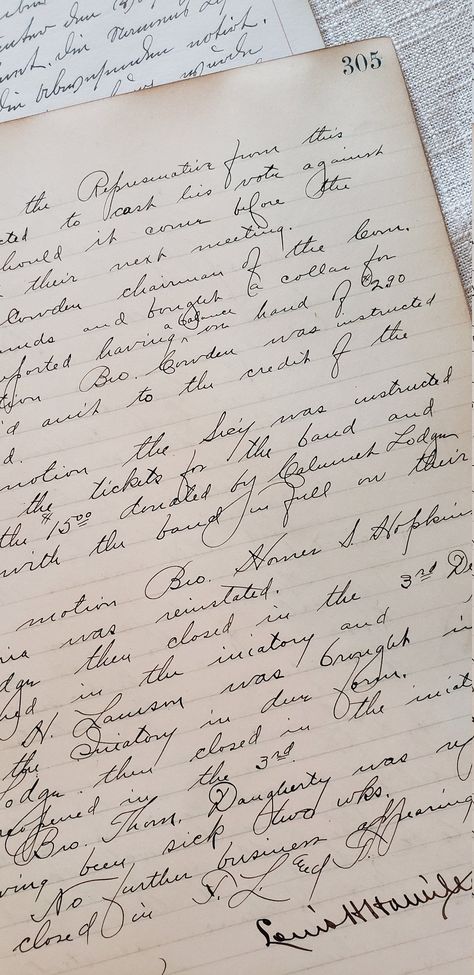 305
the Representative from this
cted to cash his vote against
should it come before the
their next meeting.
Cowden chairman of the Com.
unds and bought a collar for
eported having a balance on hand of $2.90
tion Bro. Cowden was instructed
'd am't to the credit of the
d.
motion the Sec'y was instructed
the tickets for the band and
the $15.00 donated by Calumet Lodge
with the band in full on their
motion Bro. Homer S. Hopkins
nia was reinstated.
dge then closed in the 3rd De
ned in the iniatory and
H. Lamson was brought in
the Iniatory in due form.
Lodge then closed in the iniat
reopened in the 3rd
Bro. Thom. Daugherty was re
ving been sick two wks.
No further business appearing
closed in F. L. and T.
Louis H